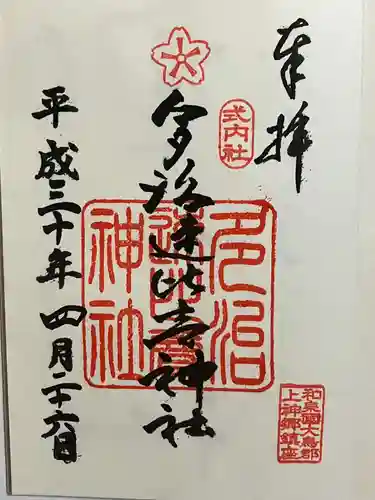 奉拝
式内社
多治速比売神社
多治
速比賣
神社
和泉國大鳥郡
上神郷鎮座
平成三十年四月二十六日